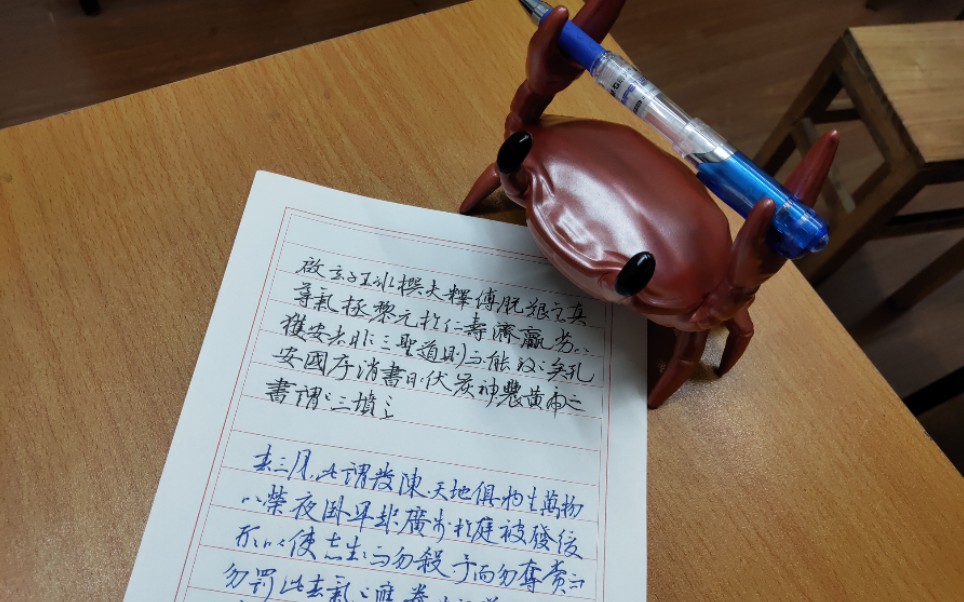 啟玄子王冰撰夫釋縛脫艱全真
導氣拯黎元於仁壽濟羸劣以
獲安者非三聖道則不能致之矣孔
安國序尚書曰伏羲神農黃帝之
書謂之三墳
春三月此謂發陳.天地俱生萬物
以榮夜臥早起廣步於庭被發緩
形以使志生生而勿殺予而勿奪賞而
勿罰此春氣之應養